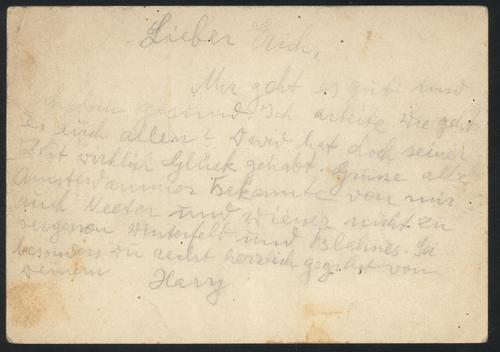 Lieber Erich,
Mir geht es gut und
gesund. Ich arbeite. Wie geht
es euch allen? David hat doch seiner
Zeit wirklich Glück gehabt. Grüsse alle
Amsterdammer Bekannte von mir
auch Meeter und Wiener nicht zu
vergessen Winterfeld und Sei
besonders du recht herzlich gegrüsst von
Deinem Harry